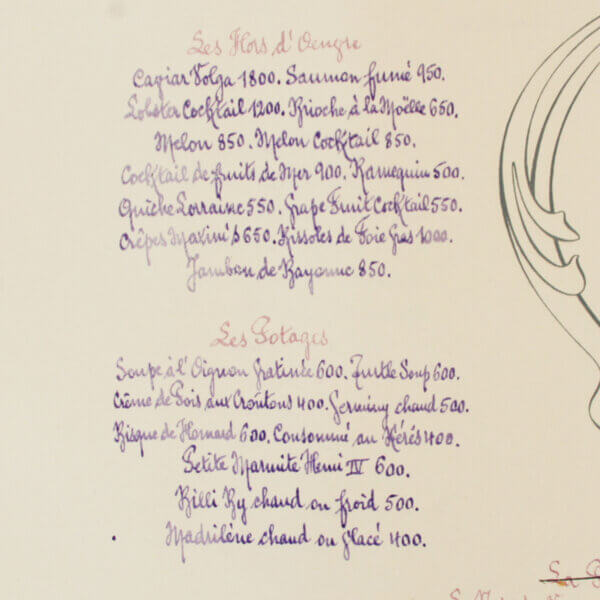 Les Hors d'Oeuvre
Caviar Volga 1800. Saumon fumé 950.
Lobster Cocktail 1200. Brioche à la Moëlle 650.
Melon 850. Melon Cocktail 850.
Cocktail de fruits de Mer 900. Ramequin 500.
Quiche Lorraine 550. Grape Fruit Cocktail 550.
Crêpes Maxim's 650. Rissoles de Foie Gras 1000.
Jambon de Bayonne 850.
Les Potages
Soupe à l'Oignon Gratinée 600. Turtle Soup 600.
Crème de Pois aux Croûtons 400. Germiny chaud 500.
Bisque de Homard 600. Consommé au Xérès 400.
Petite Marmite Henri IV 600.
Billi By chaud ou froid 500.
Madrilène chaud ou Glacé 400.
La